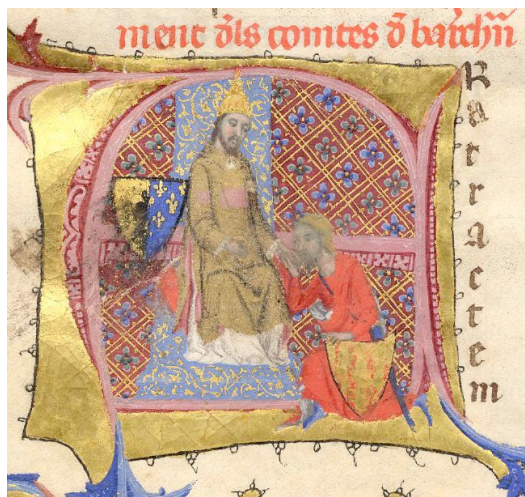 ment d̄ls comtes d̄ barchn̄
Ratractem